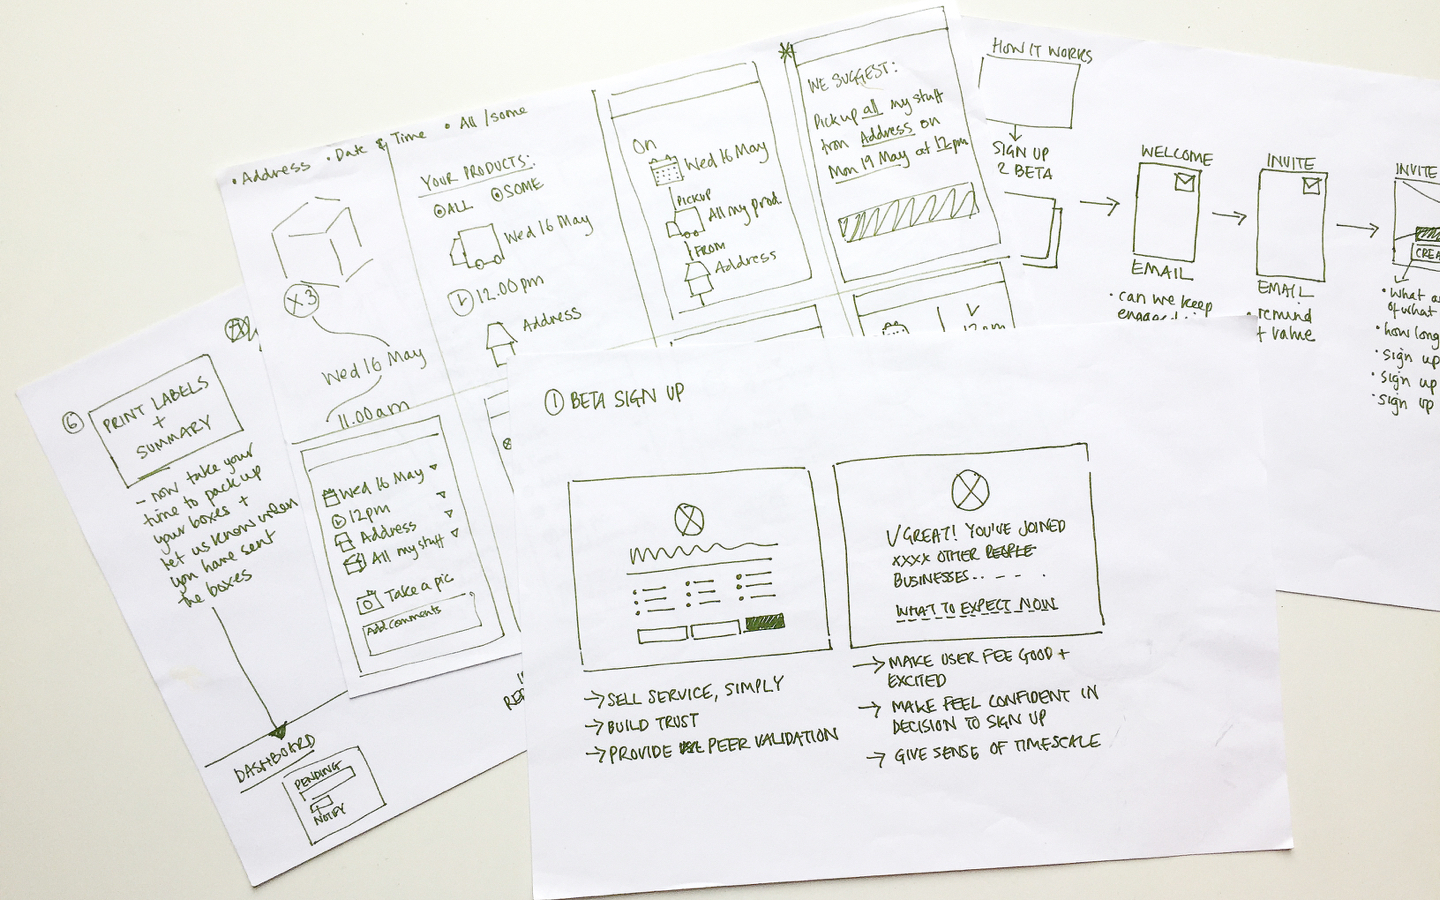 • Address • Date & Time • All / some
X3
Wed 16 May
11.00am
YOUR PRODUCTS:
ALL SOME
Wed 16 May
12.00pm
Address
On
Wed 16 May
PICKUP
All my prod.
FROM
Address
WE SUGGEST:
Pickup all my stuff
from Address on
Mon 19 May at 12pm
12pm
Wed 16 May
12pm
Address
All my stuff
Take a pic
Add comments
HOW IT WORKS
SIGN UP
2 BETA
WELCOME
EMAIL
• can we keep
engaged
INVITE
EMAIL
• remind
value
INVITE
CREA
• what
of what
• how long
• sign up
• sign up
• sign up
6
PRINT LABELS
+
SUMMARY
- now take your
time to pack up
your boxes +
let us know when
you have sent
the boxes
DASHBOARD
PENDING
NOTIFY
1 BETA SIGN UP
→ SELL SERVICE, SIMPLY
→ BUILD TRUST
→ PROVIDE PEER VALIDATION
√ GREAT! YOU'VE JOINED
XXXX OTHER PEOPLE
BUSINESSES..
WHAT TO EXPECT NOW
→ MAKE USER FEE GOOD +
EXCITED
→ MAKE FEEL CONFIDENT IN
DECISION TO SIGN UP
→ GIVE SENSE OF TIMESCALE